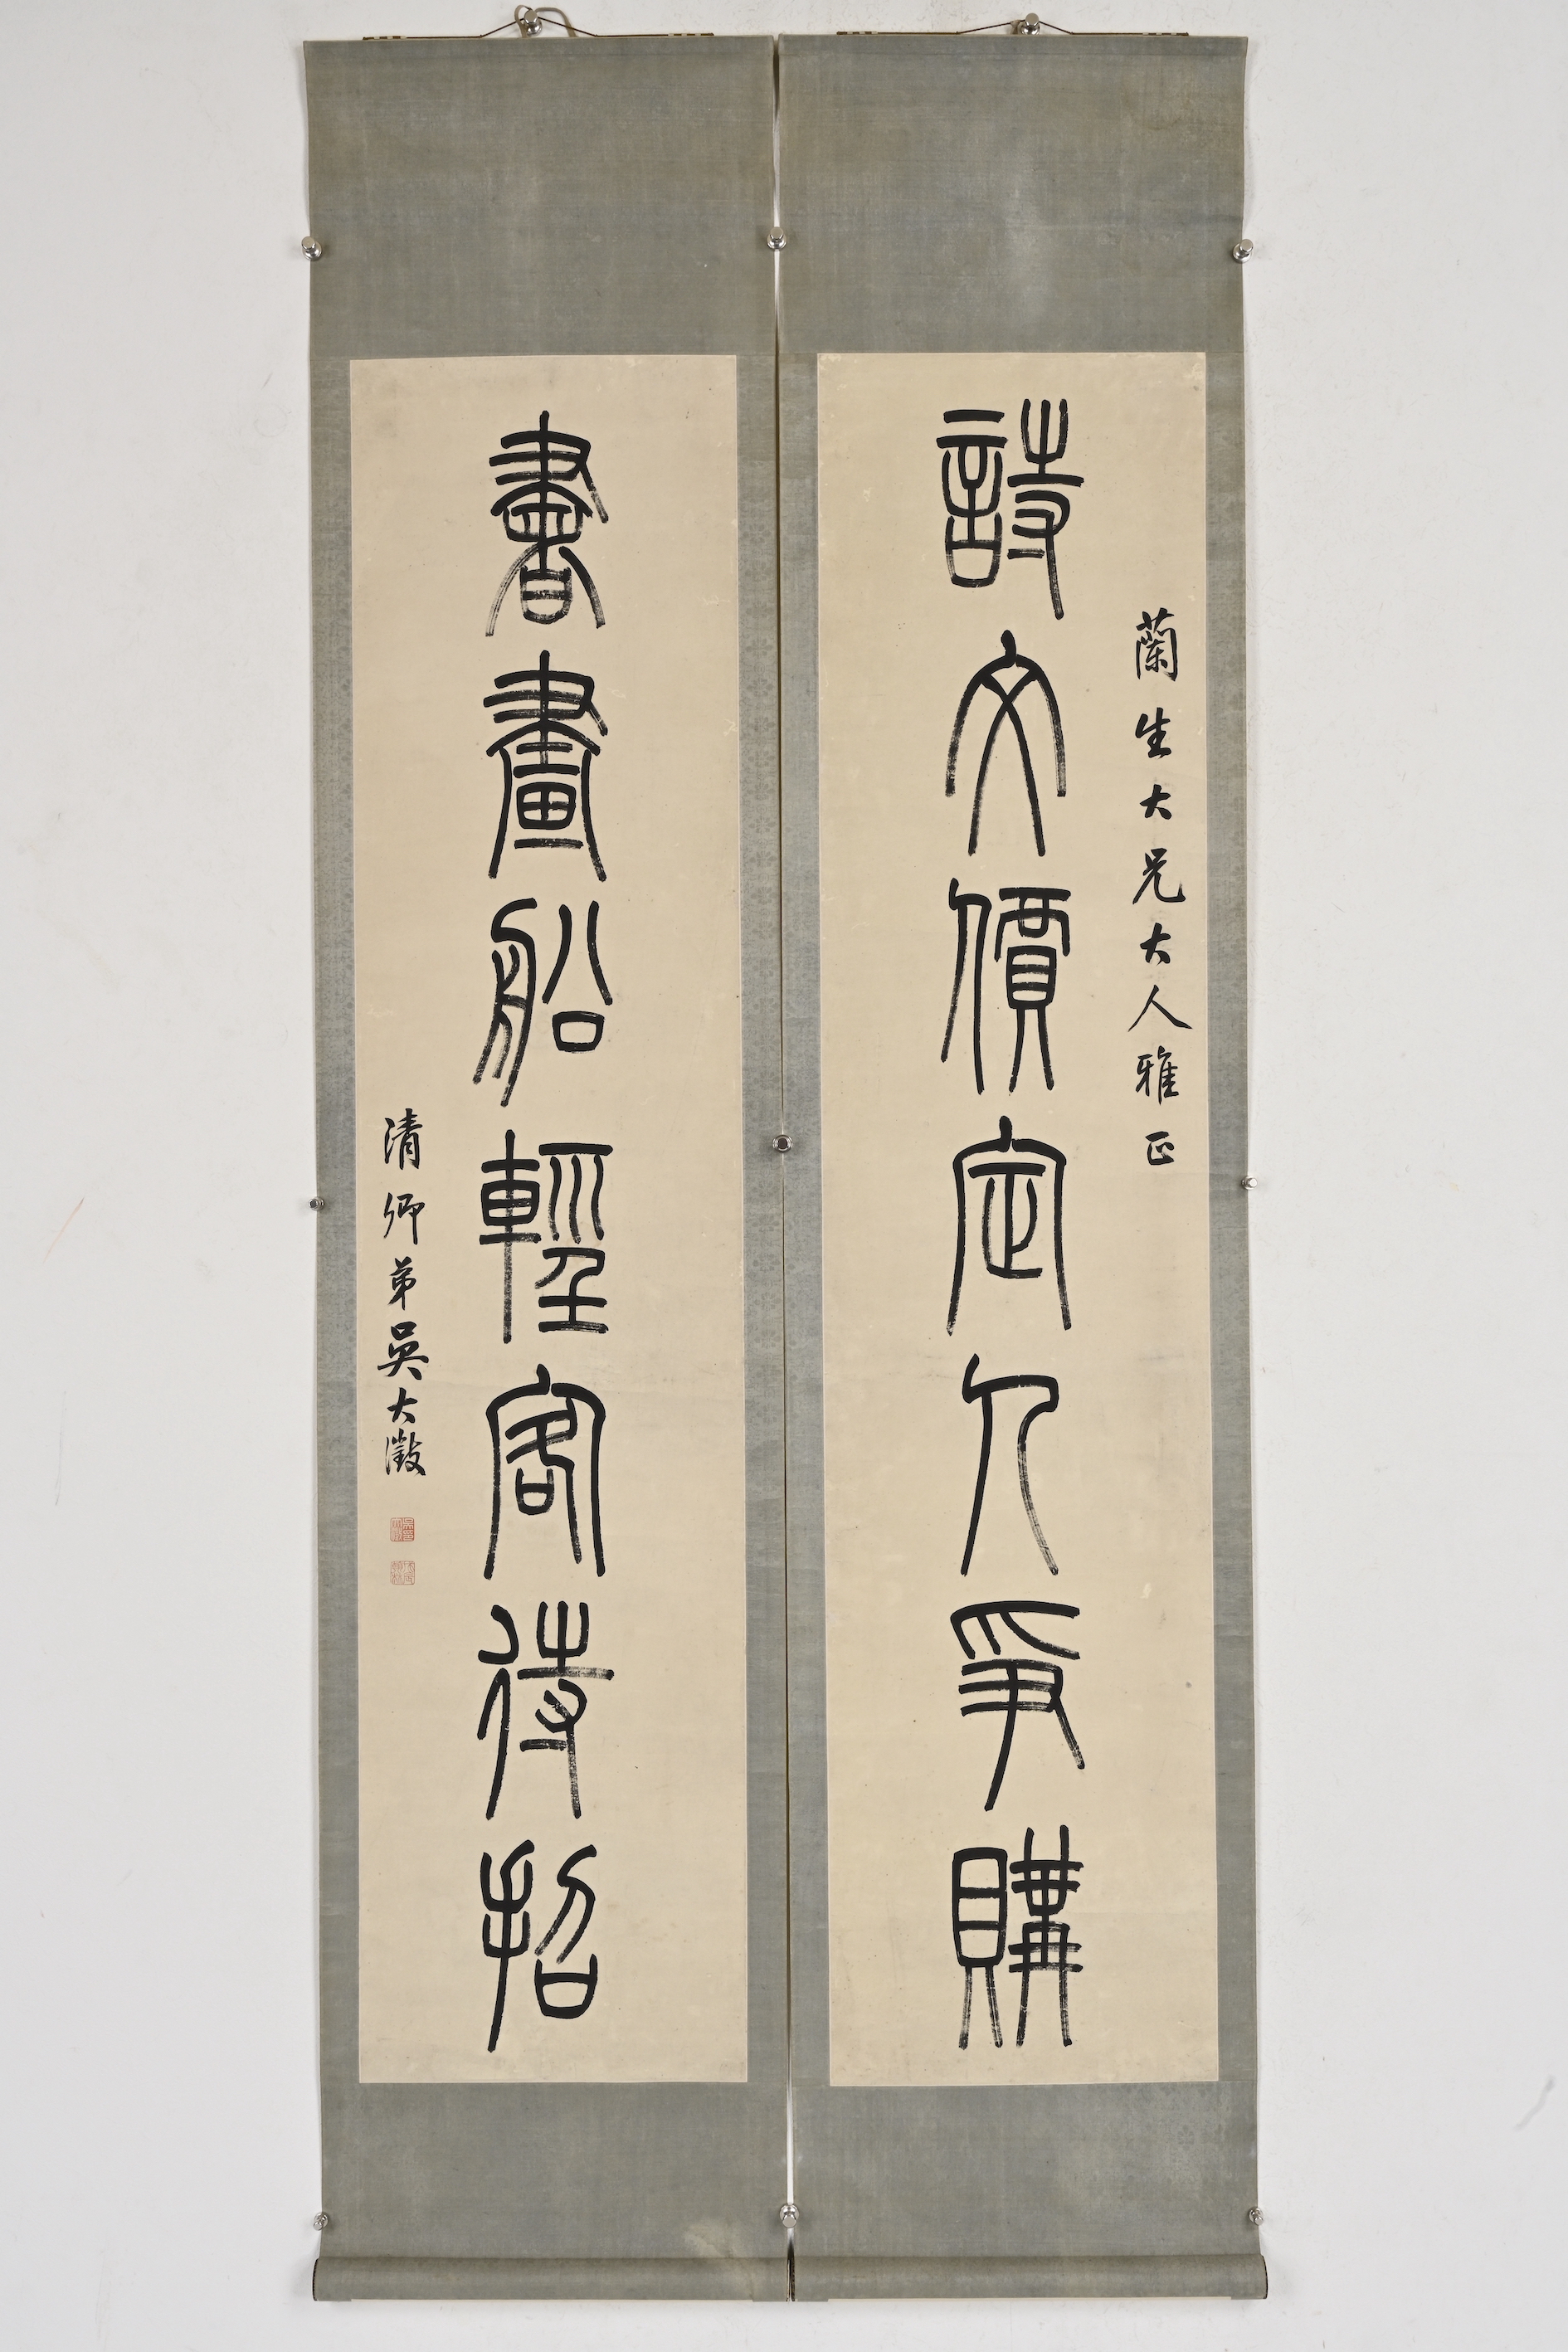 蘭生大兄大人雅正
詩文價定人爭購
書畫船輕客待招
清卿弟吳大澂